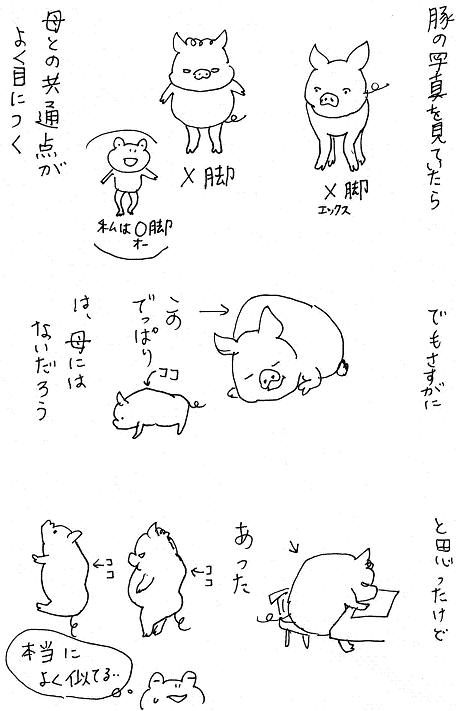 豚の写真を見ていたら
X脚
エックス
X脚
私はO脚
オー
母との共通点が
よく目につく
でもさすがに
この
でっぱり
ココ
は、母には
ないだろう
と思ったけど
あった
ココ
ココ
本当に
よく似てる..